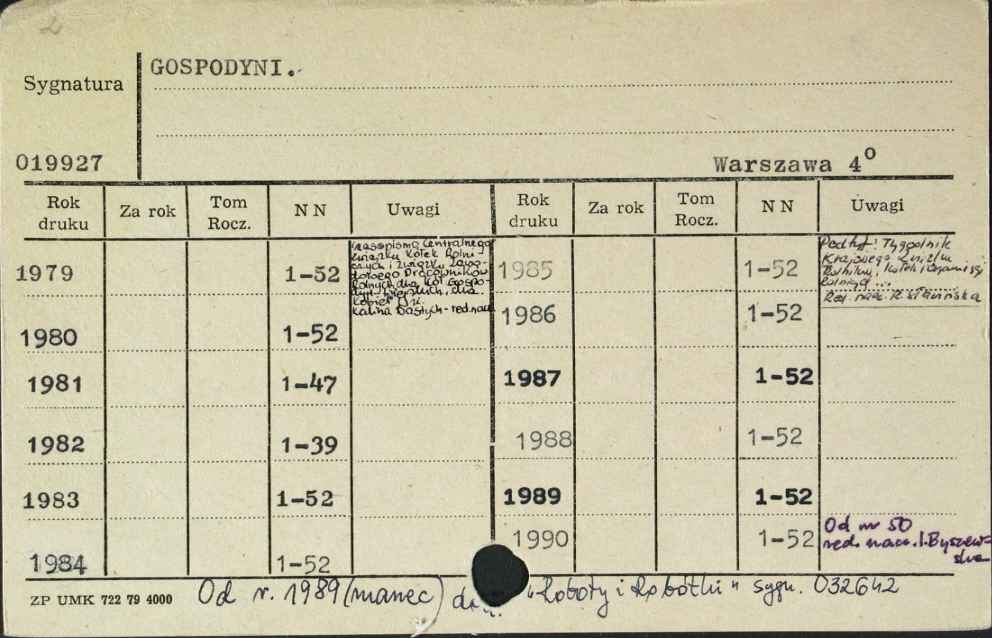 Sygnatura
GOSPODYNI.
019927
Warszawa 4⁰
Rok druku Za rok Tom Rocz. NN Uwagi Rok druku Za rok Tom Rocz. NN Uwagi
1979 1-52
Czasopismo Centralnego
Związku Kółek Rolni-
czych i Związku Zawo-
dowego Pracowników
Rolnych dla Kół Gospo-
dyń Wiejskich, dla
Kobiet
Kalina Bastych - red. nacz.
1980 1-52
1981 1-47
1982 1-39
1983 1-52
1984 1-52
1985 1-52
Podtyt: Tygodnik
Krajowego Związku
Rolników, Kółek i Organizacji
Rolnicz...
Red. nacz.
1986 1-52
1987 1-52
1988 1-52
1989 1-52
1990 1-52
Od nr 50
red. nacz. I. Byszew-
ska
ZP UMK 722 79 4000
Od r. 1989 (marzec) "Roboty i Robótki" sygn. 032642